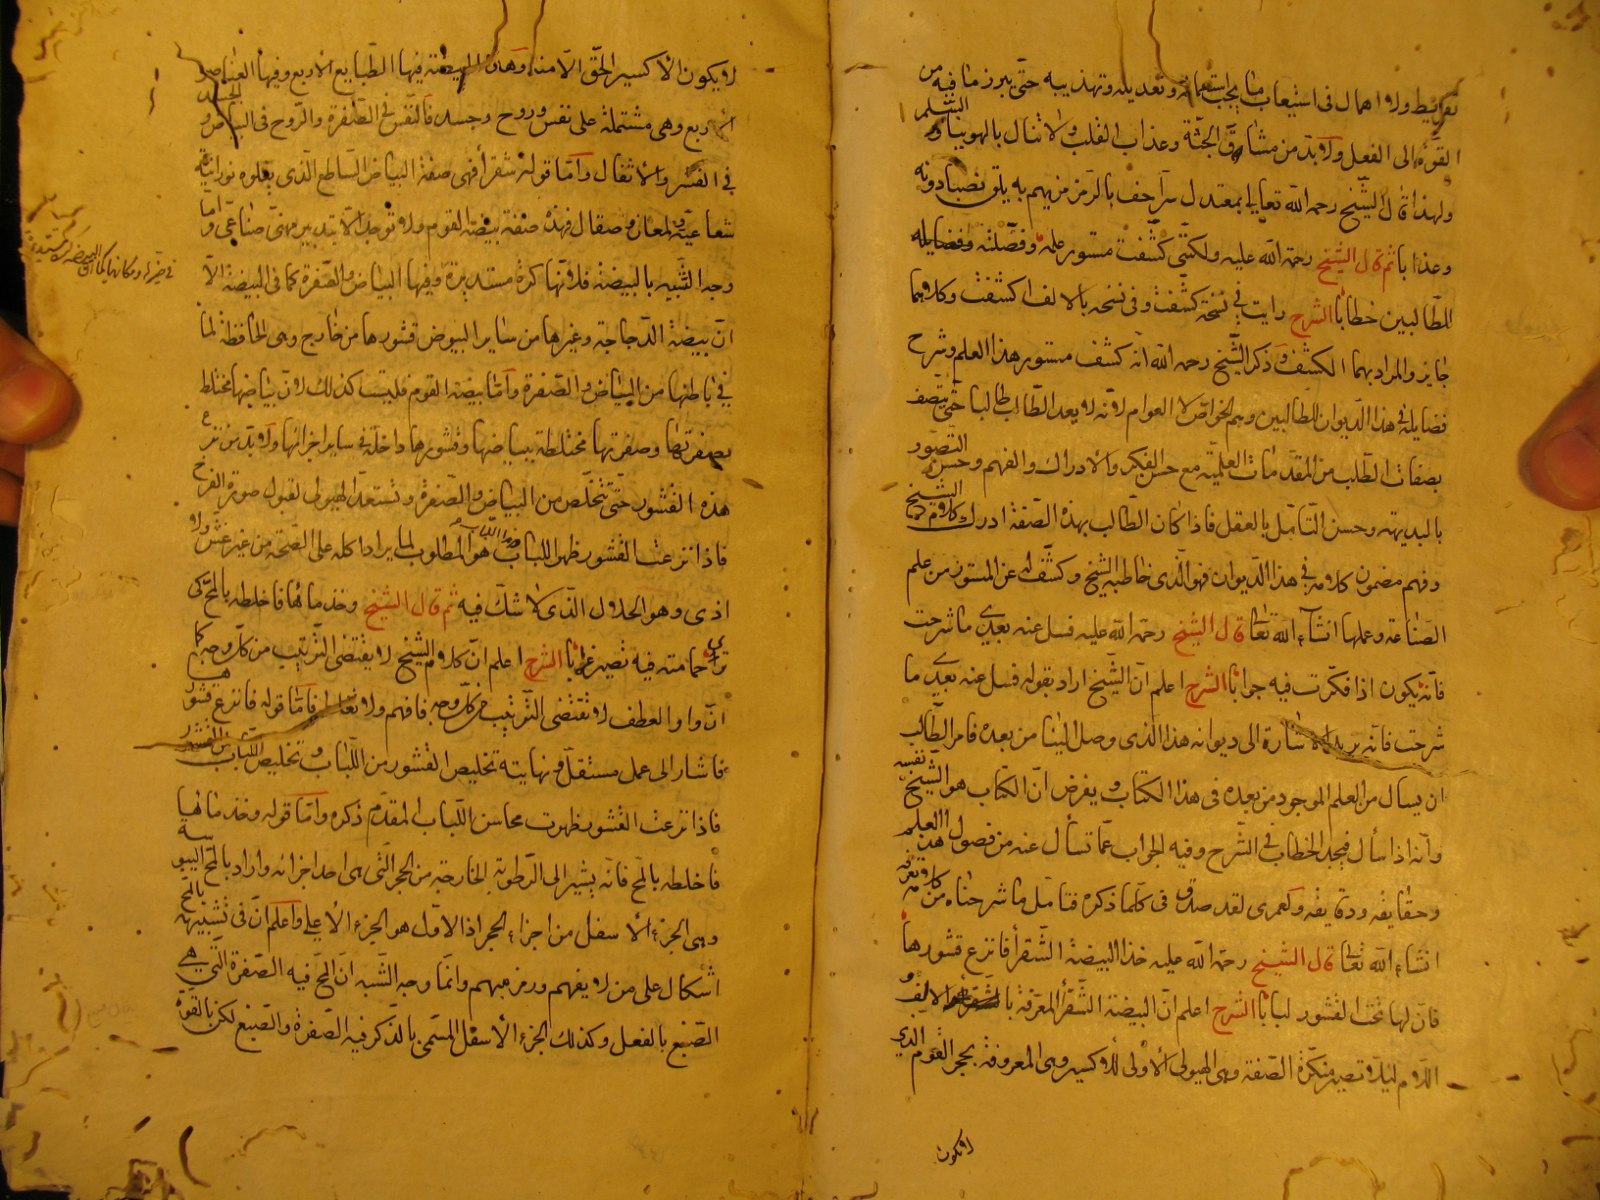 تفريط ولا اهمال في استيعاب ما يجب استعماله وتعديله وتهذيبه حتى يبرز ما فيه من
القوة الى الفعل ولا بد من مشاق الجثة وعذاب القلب ولا تنال بالهوينا و
ولهذا قال الشيخ رحمه الله تعالى بمعتدل نصبا دونه
وعذابا ثم قال الشيخ رحمة الله عليه ولكنني كشفت مستور علمه وفصلته وفضايله
للطالبين خطابا الشرح رايت في نسخة كشفت وفي نسخه بالالف اكشفت وكلاهما
جايز والمراد بهما الكشف وذكر الشيخ رحمه الله انه كشف مستور هذا العلم وشرح
فضايله في هذا الديوان للطالبين وهم الخواص لا العوام لانه لا يعد الطالب طالبا حتى يتصف
بصفات الطلب من المقدمات العلمية مع حسن الفكر والادراك والفهم وحسن التصور
بالبديهة وحسن التأمل بالعقل فاذا كان الطالب بهذه الصفة ادرك كلام الشيخ
وفهم مضمون كلامه في هذا الديوان فهو الذي خاطبه الشيخ وكشف له عن المستور من علم
الصناعة وعملها انشاء الله تعالى قال الشيخ رحمة الله عليه فسل عنه بعدي ما شرحت
فانه يكون اذا فكرت فيه جوابا الشرح اعلم ان الشيخ اراد بقوله فسل عنه بعدي ما
شرحت فانه يريد الاشارة الى ديوانه هذا الذي وصل الينا من بعده فامر الطالب
ان يسال من العلم الموجود من بعده في هذا الكتاب ويفرض ان الكتاب هو الشيخ نفسه
وانه اذا سأل فيجد الخطاب في الشرح وفيه الجواب عما تسأل عنه من فصول هذا العلم
وحقايقه ودقايقه ولعمري لقد صدق في كلما ذكره فتأمل ما شرحناه من كلامه
انشاء الله تعالى قال الشيخ رحمة الله عليه خذ البيضة الشقرأ فانزع قشورها
فان لها تحت القشور لبابا الشرح اعلم ان البيضة الشقرأ المعرفة بالالف و
اللام ليلا تصير منكرة الصفة وهي الهيولى الاولى للاكسير وهي المعروفة بحجر القوم الذي
لا يكون
لا يكون الاكسير الحق الا منه وهذه البيضة فيها الطبايع الاربع وفيها العناصر
الاربع وهي مشتملة على نفس وروح وجسد فالنفس في الصفرة والروح في البياض و الجسد
في القشر والاثفال واما قوله شقرأ فهي صفة البياض الساطع الذي يعلوه نورانية
شعاعية ولمعان وصقال فهذه صفة بيضة القوم ولا توجد الا بتدبير صناعي واما
وجه التشبيه بالبيضة فلانها كرة مستديرة وفيها البياض والصفرة كما في البيضة الا
ان بيضة الدجاجة وغيرها من ساير البيوض قشورها من خارج وهي الحافظة لما
في باطنها من البياض والصفرة واما بيضة القوم فليست كذلك لان بياضها مختلط
بصفرتها وصفرتها مختلطة ببياضها وقشورها داخلة في ساير اجزائها ولا بد من نزع
هذه القشور حتى تتخلص من البياض والصفرة وتستعد الهيولى لقبول صورة الفرخ
فاذا نزعت القشور ظهر اللباب وهذا اللباب هو المطلوب لما يراد اكله على الصحة من غير غش ولا
اذى وهو الحلال الذي لا شك فيه ثم قال الشيخ وخذ ماءها فاخلطه بالمح كي
الشرح اعلم ان كلام الشيخ لا يقتضي الترتيب من كل وجه كما
ان واو العطف لا تقتضي الترتيب من كل وجه فافهم ولا تغالط فاما قوله فانزع قشورها
فاشار الى عمل مستقل ونهايته تخليص القشور من اللباب وتخليص اللباب من القشور
فاذا نزعت القشور ظهرت محاسن اللباب المقدم ذكره واما قوله وخذ ماءها
فاخلطه بالمح فانه يشير الى الرطوبة الخارجة من الحجر التي هي احد اجزائه واراد بالمح اليبوسة
وهي الجزء الاسفل من اجزاء الحجر اذ الاول هو الجزء الاعلى واعلم ان في تشبيهه بالمح
اشكال على من لا يفهم ورمز مبهم وانما وجه الشبه ان المح فيه الصفرة التي هي
الصبغ بالفعل وكذلك الجزء الاسفل المسمى بالذكر فيه الصفرة والصبغ لكن بالقوة